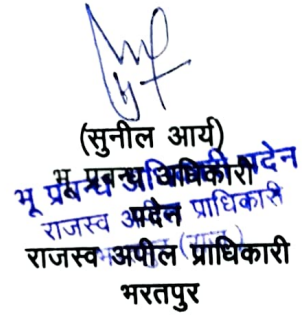 (सुनील आर्य)
भू प्रबन्ध अधिकारी
पदेन
राजस्व अपील प्राधिकारी
भरतपुर
भू प्रबन्ध अधिकारी पदेन
राजस्व अपील प्राधिकारी